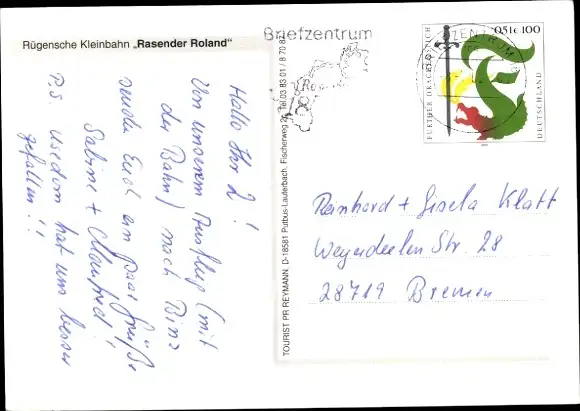 Rügensche Kleinbahn „Rasender Roland"
Briefzentrum
Hallo Ihr 2!
Von unserem Ausflug (mit
der Bahn) nach Binz
sende Euch ein paar Grüße
Sabine + Manfred!
P.S Usedom hat uns besser
gefallen!!
TOURIST PR REYMANN, D-18581 Putbus-Lauterbach, Fischerweg 2, Tel.03 83 01 / 8 70 87
FURTHER DRACHENSTICH
0,51€ 100
DEUTSCHLAND
ZENTRUM
Reinhard + Gisela Klatt
Str. 28
28719 Bremen